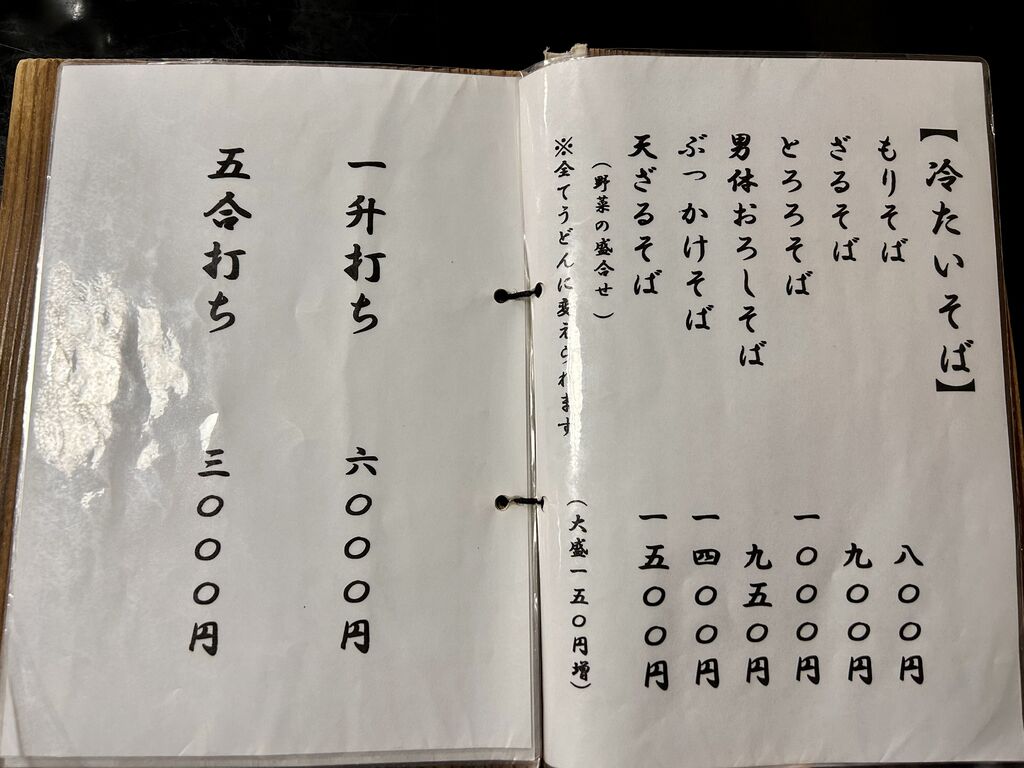 【冷たいそば】
もりそば 八〇〇円
ざるそば 九〇〇円
とろろそば 一〇〇〇円
男体おろしそば 九五〇円
ぶっかけそば 一四〇〇円
天ざるそば 一五〇〇円
(野菜の盛合せ)
※全てうどんに変えられます (大盛一五〇円増)
一升打ち 六〇〇〇円
五合打ち 三〇〇〇円